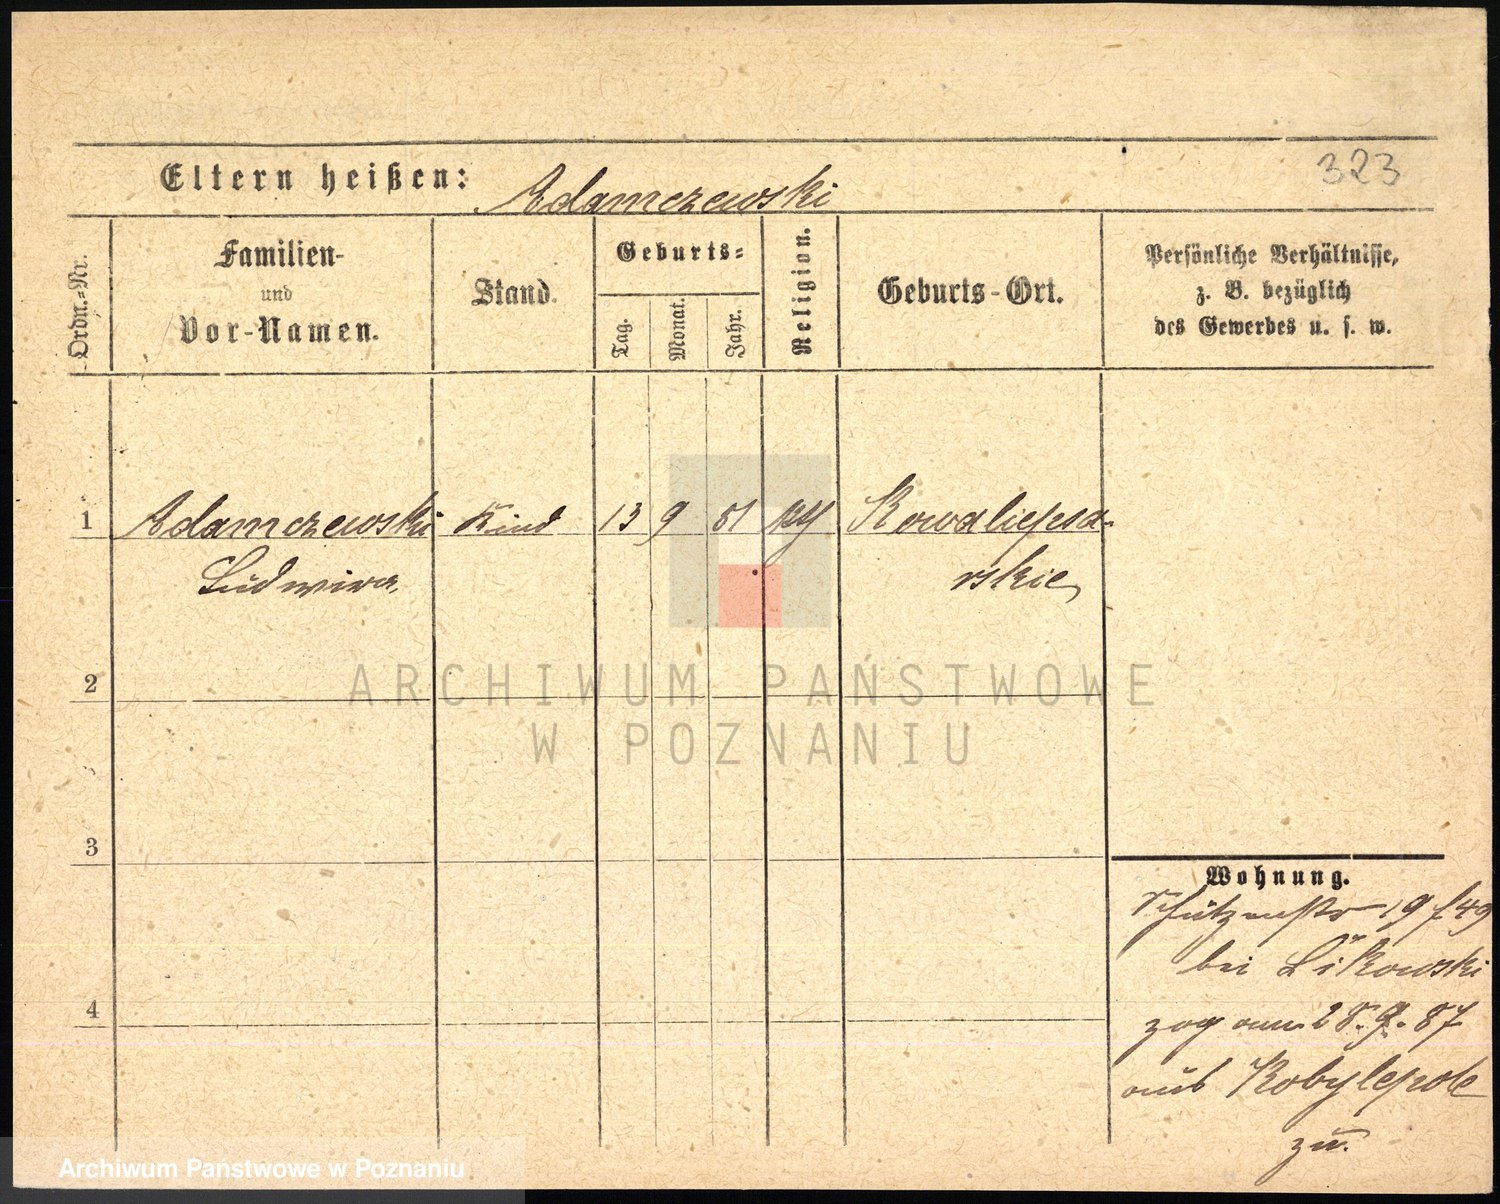 Eltern heißen: Adamczewski
323
Ordn.-Nr.
Familien-
und
Vor-Namen.
Stand.
Geburts-
Tag.
Monat.
Jahr.
Religion.
Geburts-Ort.
Persönliche Verhältnisse,
z. B. bezüglich
des Gewerbes u. s. w.
1 Adamczewski Kind 13 9 81
Ludwika
rskie
2
ARCHIWUM PAŃSTWOWE
W POZNANIU
3
Wohnung.
Schützenstr 19
bei
zog am 28. 9. 87
4
aus Kobylepole
zu.
Archiwum Państwowe w Poznaniu